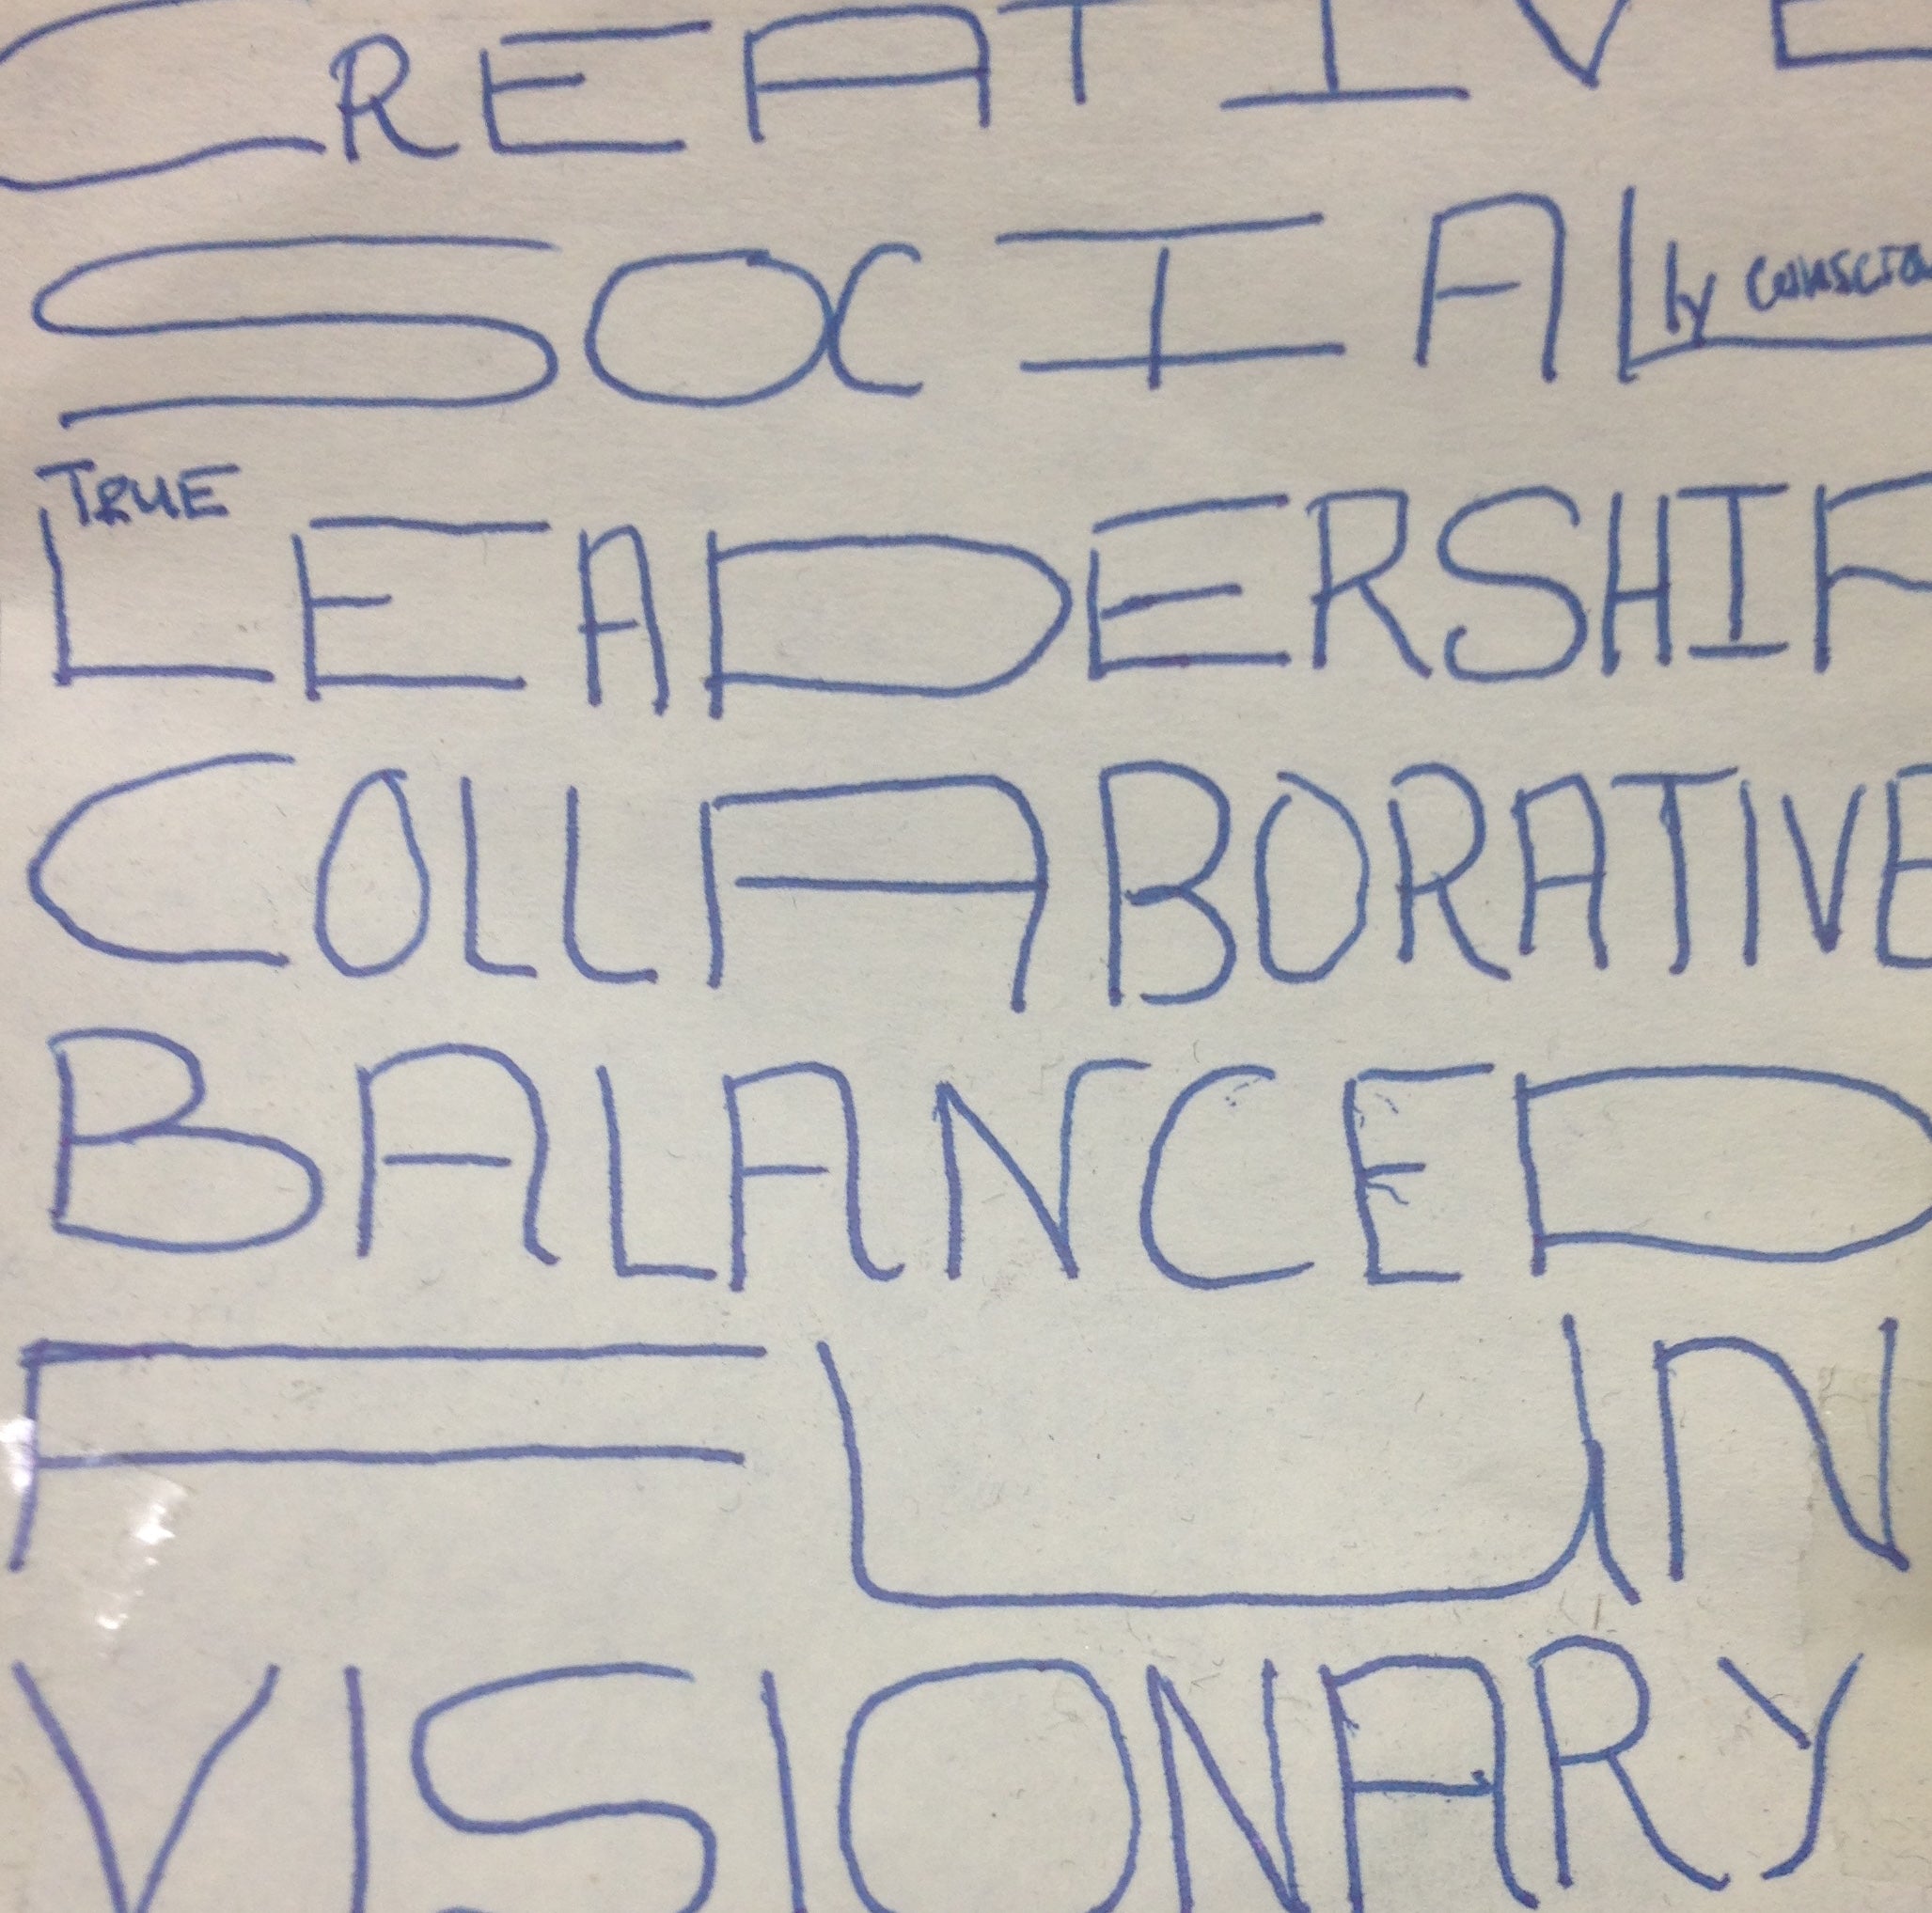 CREATIVE
SOCIALly CONSCIO
TRUE
LEADERSHIP
COLLABORATIVE
BALANCED
FUN
VISIONARY